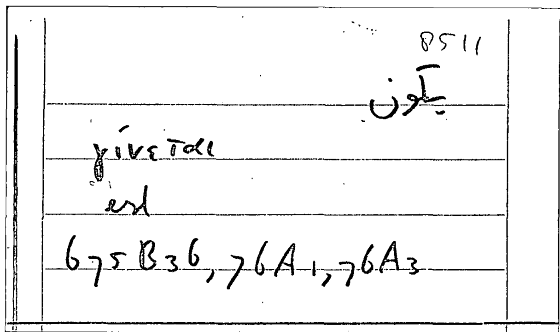 8511
يكون
γίνεται
est
675B36, 76A1, 76A3